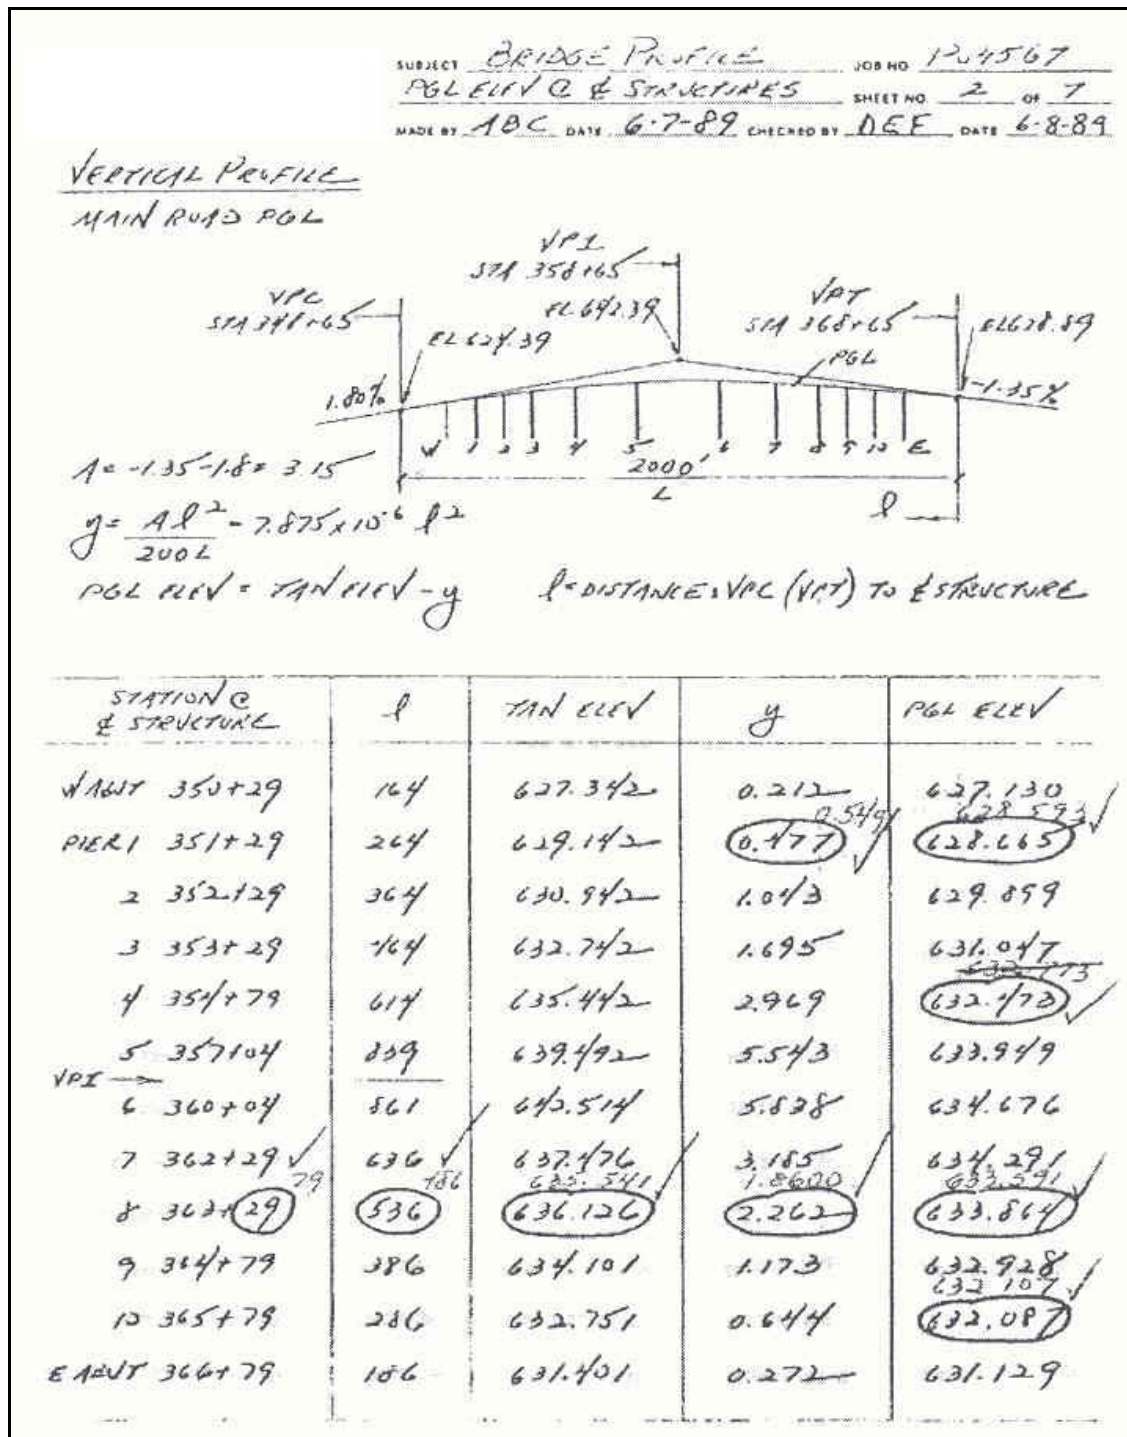 SUBJECT BRIDGE PROFILE JOB NO P04567
PGL ELEV @ ℄ STRUCTURES SHEET NO. 2 OF 7
MADE BY ABC DATE 6-7-89 CHECKED BY DEF DATE 6-8-89
VERTICAL PROFILE
MAIN ROAD PGL
VPI
STA 358+65
VPC
STA 348+65
EL. 642.39
EL 624.39
VPT
STA 368+65
EL 628.89
PGL
1.80%
-1.35%
W 1 2 3 4 5 6 7 8 9 10 E
A = -1.35-1.8 = 3.15
2000'
L
l
y = Al² / 200L = 7.875 x 10⁻⁶ l²
PGL ELEV = TAN ELEV - y l = DISTANCE: VPC (VPT) TO ℄ STRUCTURE
STATION @ ℄ STRUCTURE l TAN ELEV y PGL ELEV
W ABUT 350+29 164 627.342 0.212 627.130
0.549 628.593
PIER 1 351+29 264 629.142 0.477 628.665
2 352+29 364 630.942 1.043 629.899
3 353+29 464 632.742 1.695 631.047
4 354+79 614 635.442 2.969 632.473
5 357+04 839 639.492 5.543 633.949
VPI
6 360+04 861 640.514 5.838 634.676
7 362+29 636 637.476 3.185 634.291
79 486 635.541 1.8600 633.591
8 363+29 536 636.126 2.262 633.864
9 364+79 386 634.101 1.173 632.928
632 107
10 365+79 286 632.751 0.644 632.087
E ABUT 366+79 186 631.401 0.272 631.129